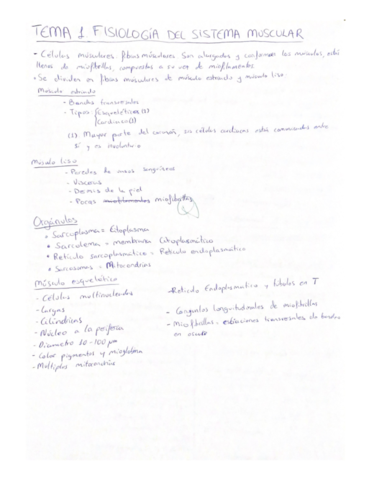 TEMA 1 FISIOLOGÍA DEL SISTEMA MUSCULAR
- Células musculares fibras musculares. Son alargadas y conforman los músculos, están
llenas de miofibrillas, compuestas a su vez de miofilamentos.
- Se dividen en fibras musculares de músculo estriado y músculo liso.
Músculo estriado
- Bandas transversales
- Tipos Esqueléticas (1)
Cardiacas (2)
(2) Mayor parte del corazón, las células cardiacas están conectadas entre
sí y es involuntario
Músculo liso
- Paredes de vasos sanguíneos
- Vísceras
- Dermis de la piel
- Pocas miofibrillas
Orgánulos
• Sarcoplasma = Citoplasma
• Sarcolema = membrana citoplasmática
• Retículo sarcoplasmático = Retículo endoplasmático
• Sarcosomas = Mitocondrias
Músculo esquelético
- Células multinucleadas
- Largas
- Cilíndricas
- Núcleo a la periferia
- Diámetro 10-100 µm
- Color pigmentos y mioglobina
- Múltiples mitocondrias
- Retículo Endoplasmático y túbulos en T
- Conjuntos longitudinales de miofibrillas
- Miofibrillas: estriaciones transversales de bandas
en